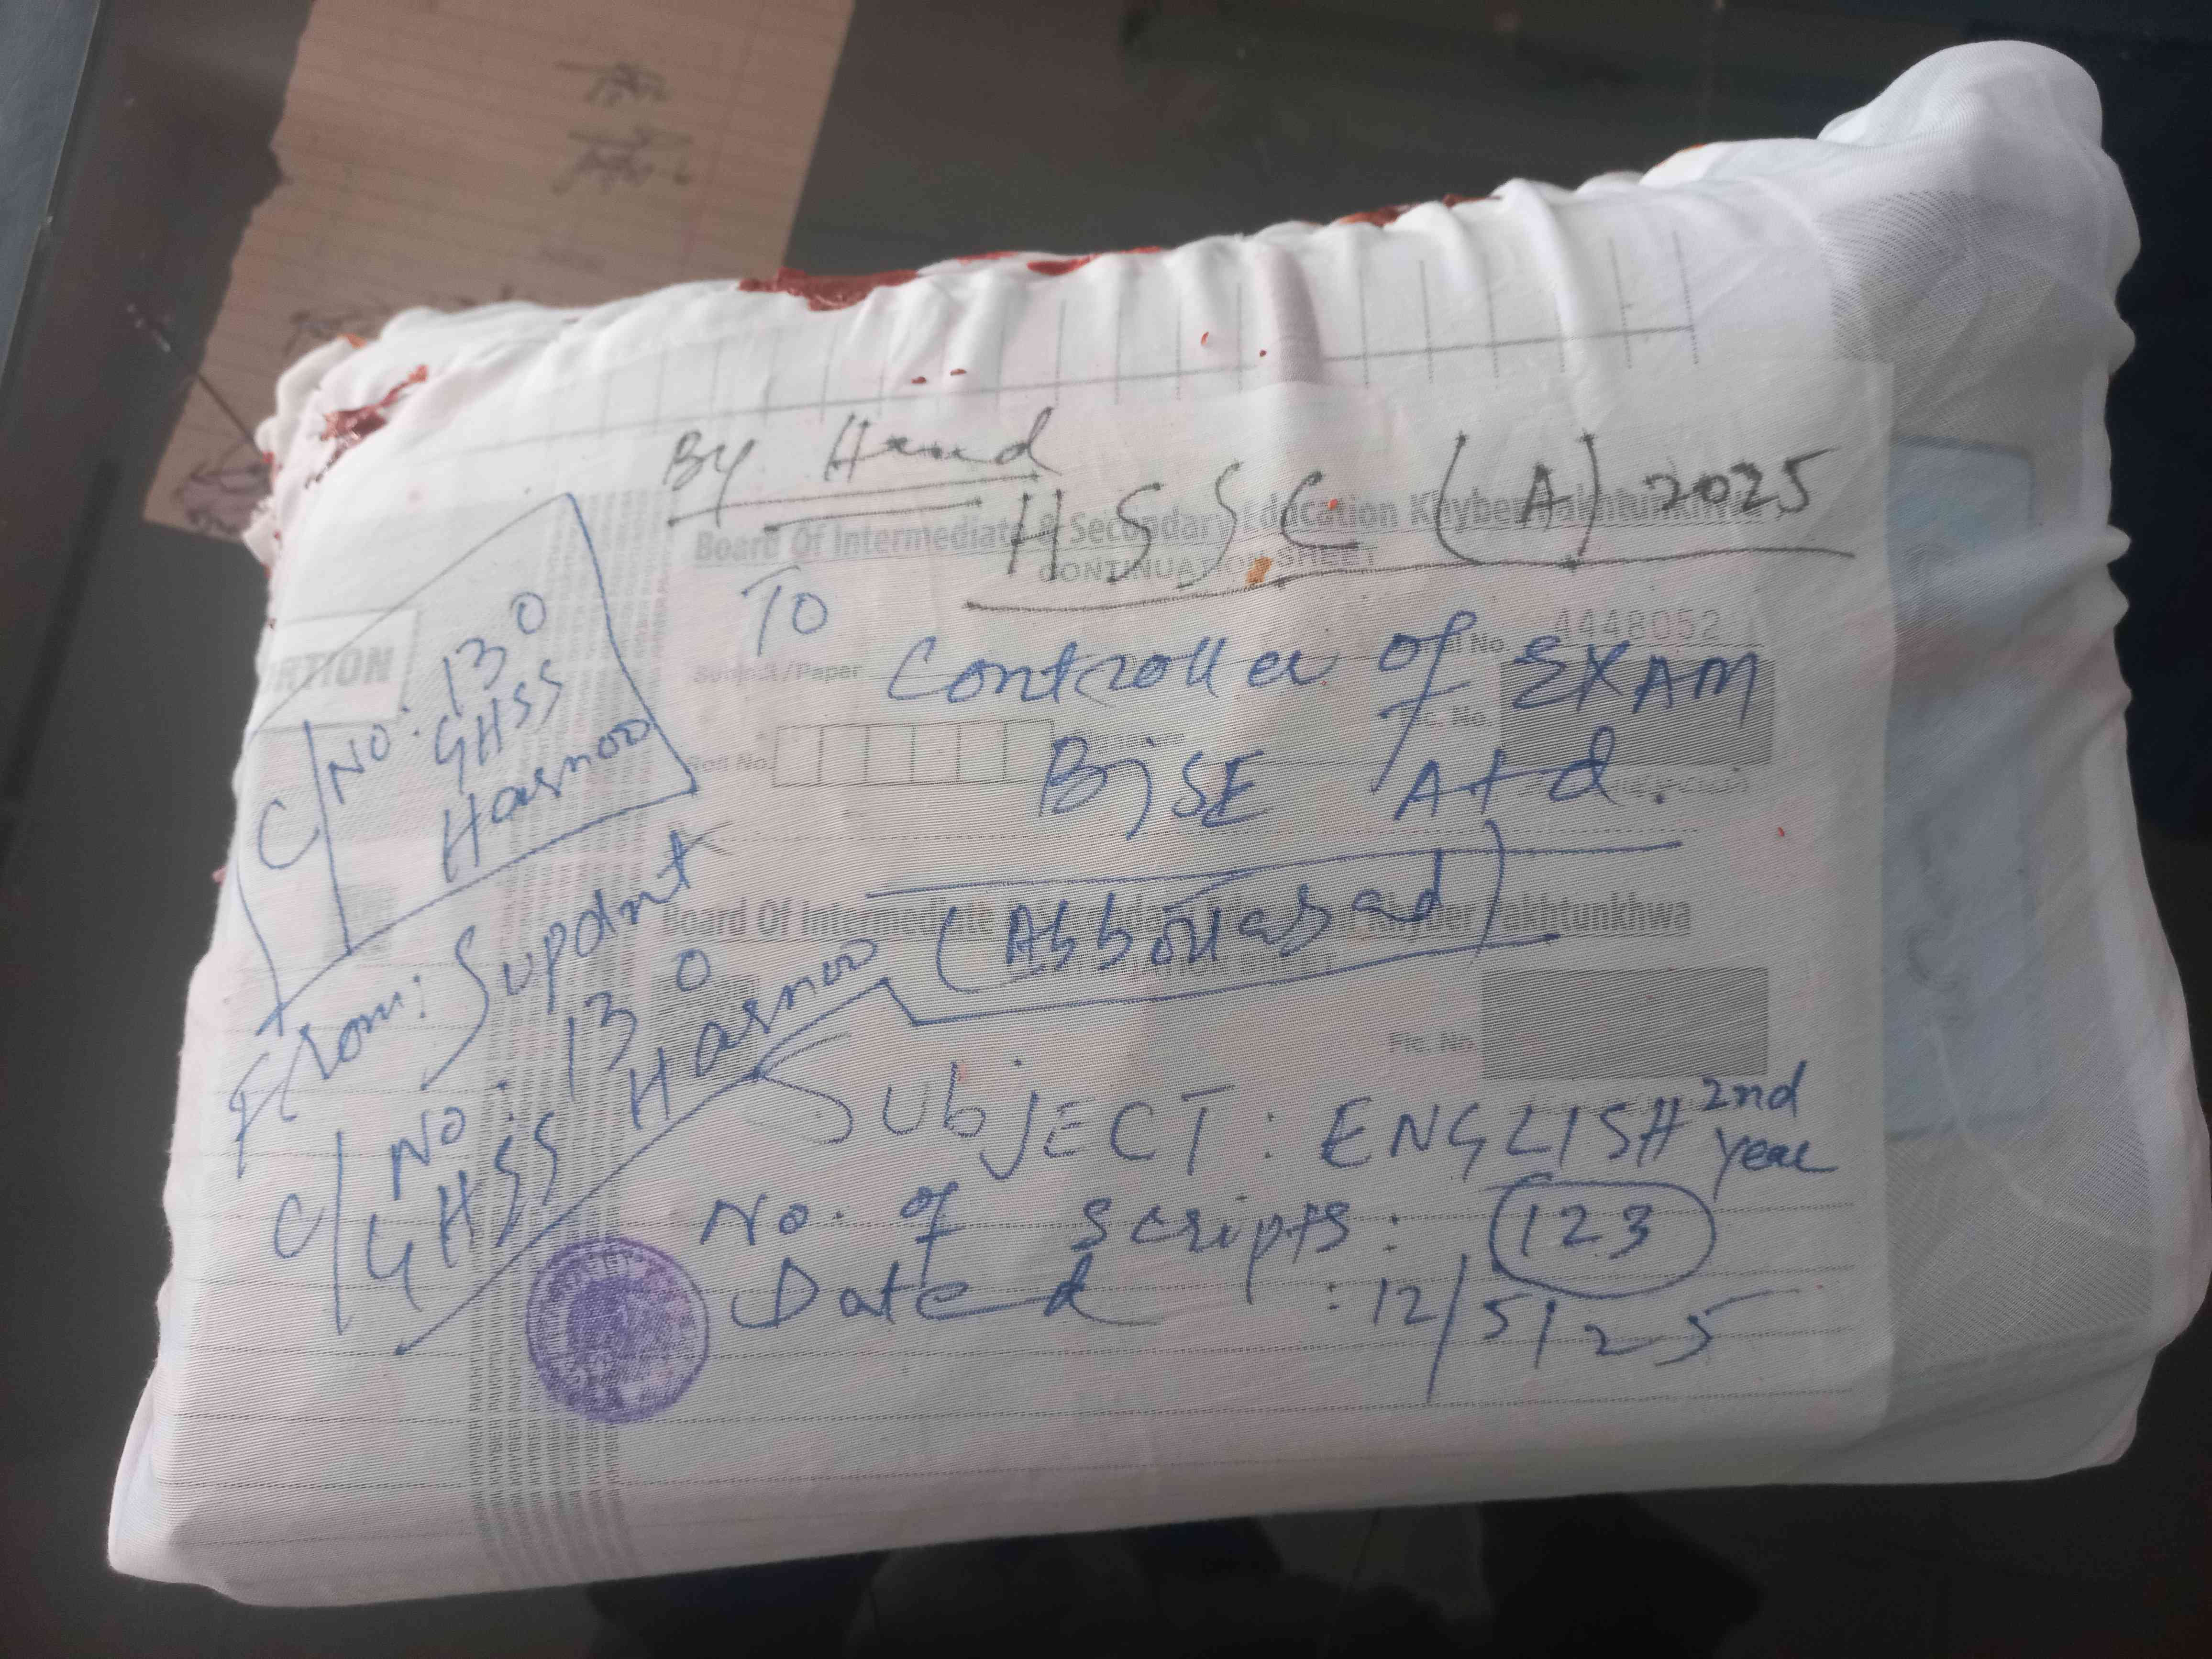 By Hand
HSSC (A) 2025
Board Of Intermediate & Secondary Education Khyber Pakhtunkhwa
CONTINUATION SHEET
To
4448052
Subject/Paper
Controller of EXAM
Fic. No.
Roll No.
BiSE Atd.
C/No: 130
GHSS
Hasnoo
RTION
(Abbottabad)
Board Of Intermediate & Secondary Education Khyber Pakhtunkhwa
Fic. No.
From: Supdnt
C/No: 130
GHSS Hasnoo
SUbJECT: ENGLISH 2nd year
No. of Scripts: 123
Dated : 12/5/25